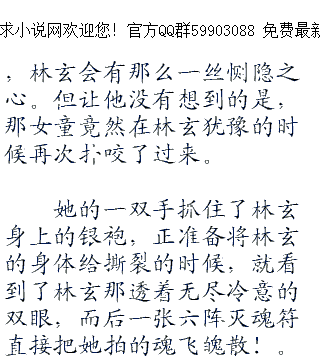 求小说网欢迎您！官方QQ群59903088 免费最新
，林玄会有那么一丝恻隐之
心。但让他没有想到的是，
那女童竟然在林玄犹豫的时
候再次扑咬了过来。
她的一双手抓住了林玄
身上的银袍，正准备将林玄
的身体给撕裂的时候，就看
到了林玄那透着无尽冷意的
双眼，而后一张六阵灭魂符
直接把她拍的魂飞魄散！。